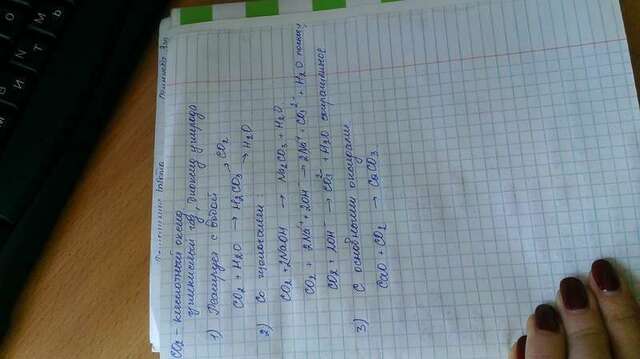 CO2 - кислотный оксид
углекислый газ, диоксид углерода
1) Реагирует с водой
CO2 + H2O → H2CO3 → CO2
→ H2O
2) Со щелочами:
CO2 + 2NaOH → Na2CO3 + H2O
CO2 + 2Na⁺ + 2OH⁻ → 2Na⁺ + CO3²⁻ + H2O полное
CO2 + 2OH⁻ → CO3²⁻ + H2O сокращённое
3) С основными оксидами
CaO + CO2 → CaCO3